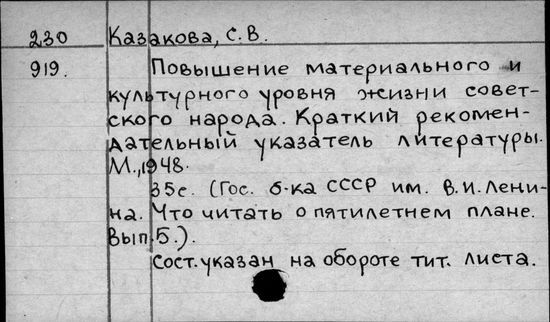 230 Казакова, С.В.
919. Повышение материального и
культурного уровня жизни совет-
ского народа. Краткий рекомен-
дательный указатель литературы.
М., 1948.
35с. (Гос. б-ка СССР им. В.И.Лени-
на. Что читать о пятилетнем плане.
Вып.5.).
Сост. указан на обороте тит. листа.